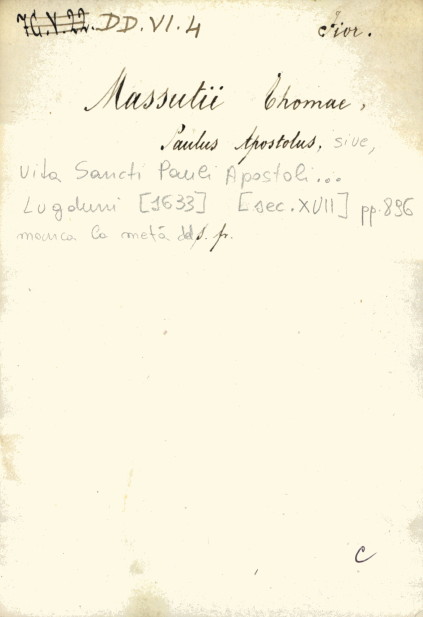 7G.V.22. DD.VI.4 Fior.
Massutii Thomae,
Paulus Apostolus, sive,
Vita Sancti Pauli Apostoli...
Lugduni [1633] [sec.XVII] pp.896
manca la metà del f. fr.
C